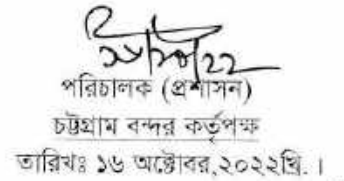 পরিচালক (প্রশাসন)
চট্টগ্রাম বন্দর কর্তৃপক্ষ
তারিখঃ ১৬ অক্টোবর,২০২২খ্রি. ।